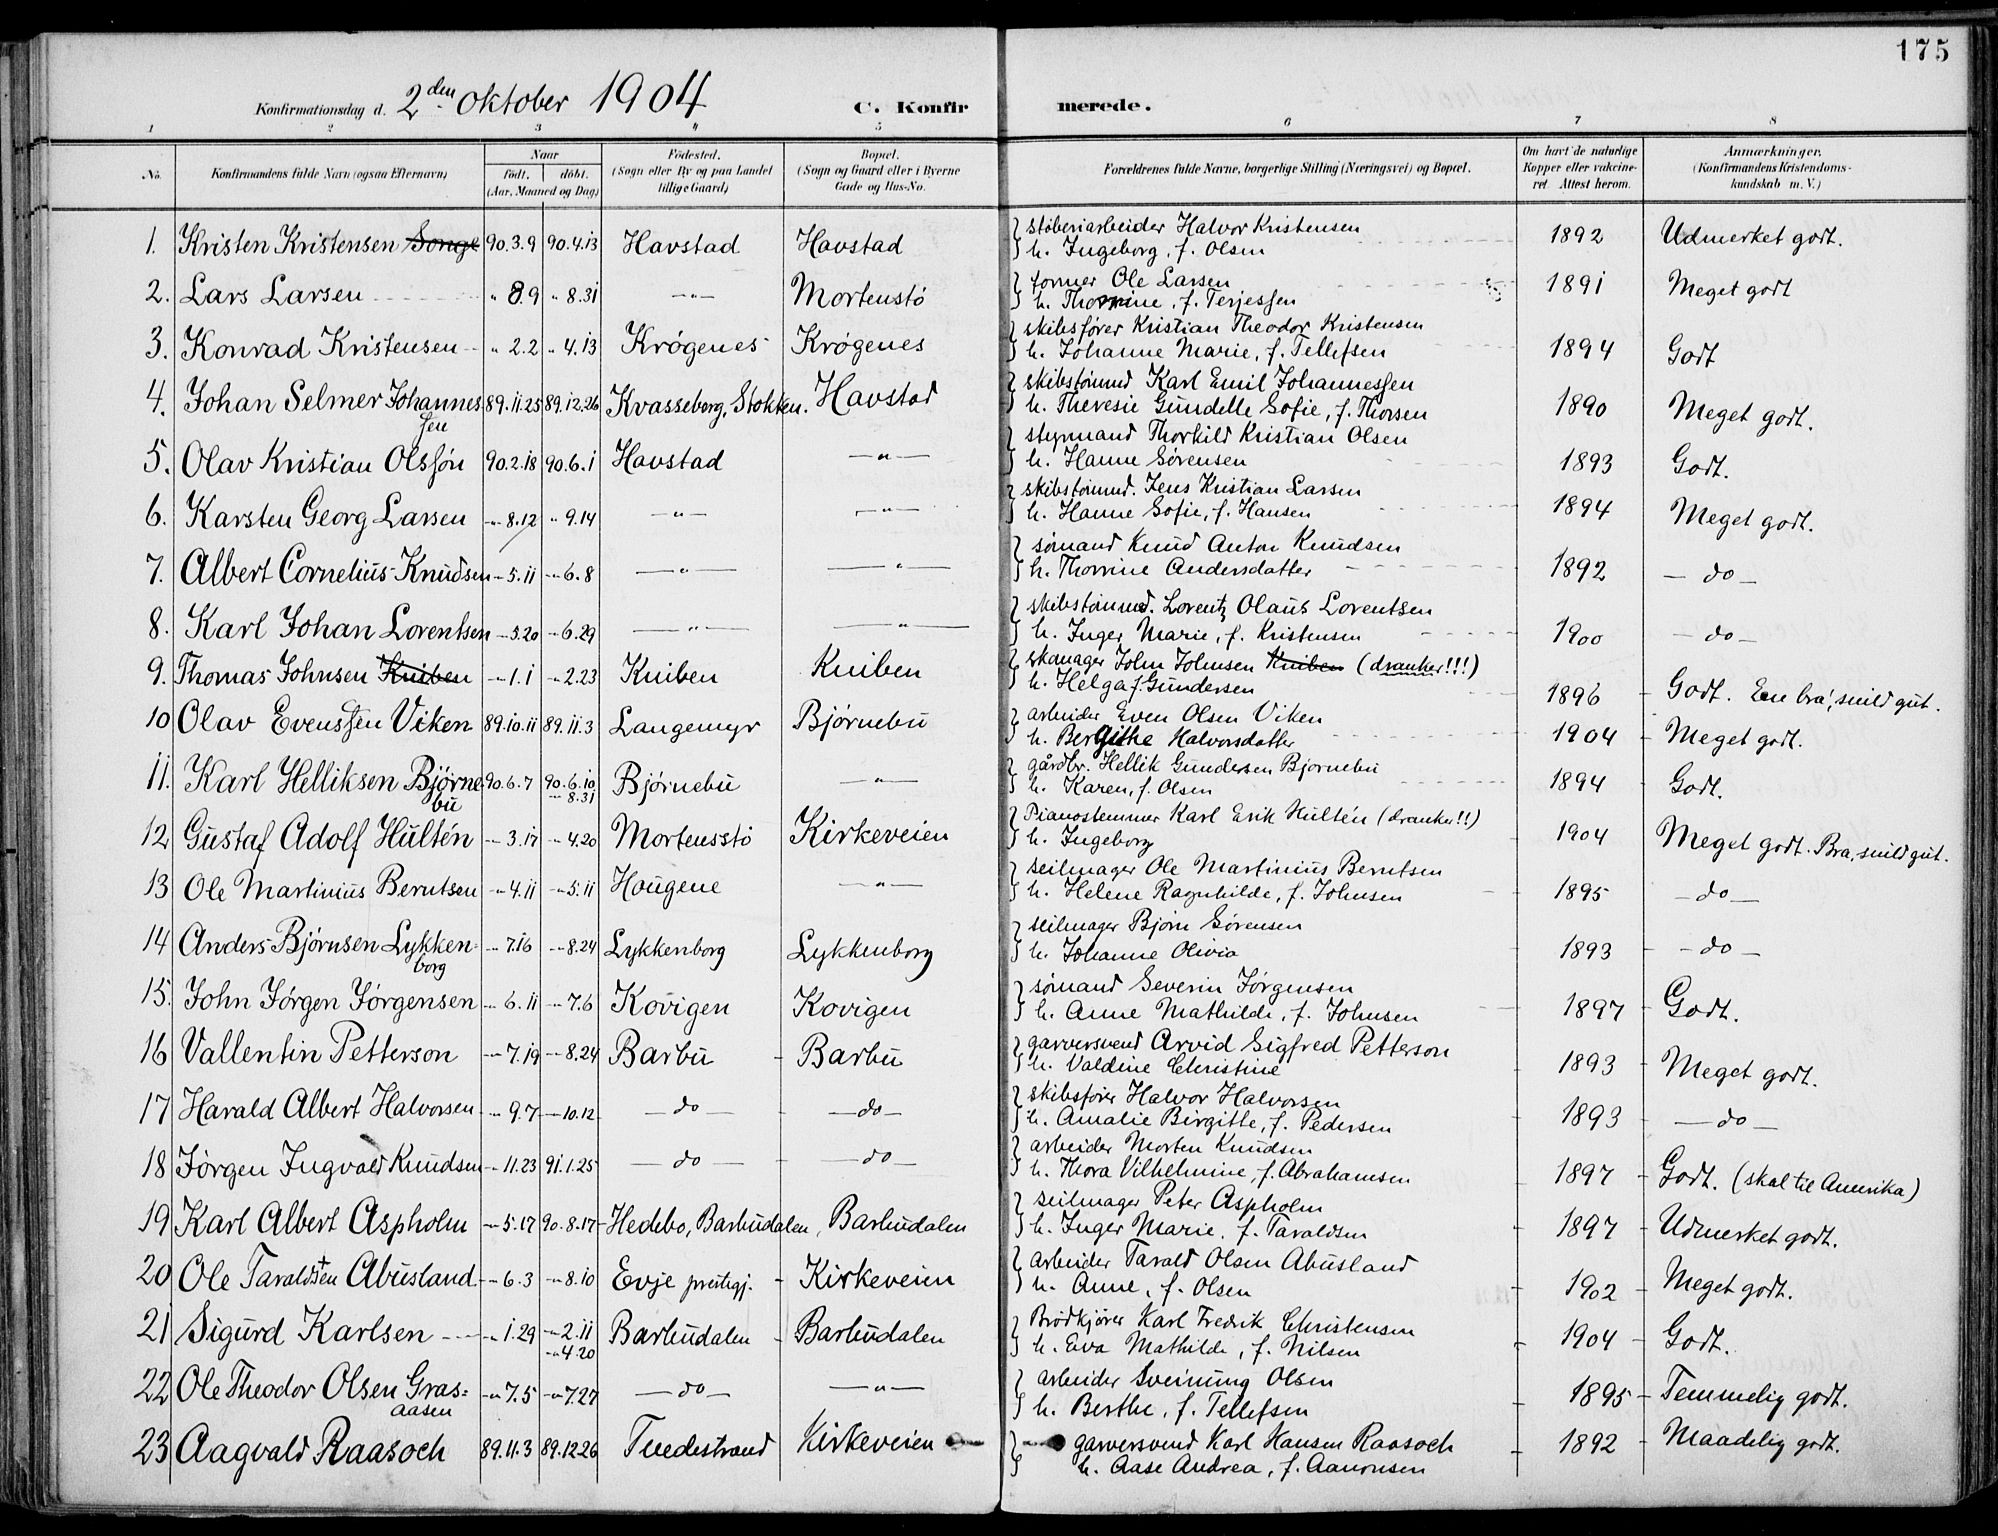 175
Konfirmationsdag d. 2den oktober 1904 C. Konfirmerede.
1 2 3 4 5 6 7 8
No. Konfirmandens fulde Navn (ogsaa Efternavn) Naar født. døbt. (Aar, Maaned og Dag) Fødested. (Sogn eller By og paa Landet tillige Gaard) Bopæl. (Sogn og Gaard eller i Byerne Gade og Hus-No. Forældrenes fulde Navne, borgerlige Stilling (Næringsvei) og Bopæl. Om havt de naturlige Kopper eller vakcineret. Attest herom. Anmærkninger. (Konfirmandens Kristendomskundskab m. V.)
1. Kristen Kristensen Songe 90.3.9 90.4.13 Havstad Havstad støberiarbeider Halvor Kristensen 1892 Udmerket godt.
h. Ingeborg, f. Olsen
2. Lars Larsen " 8.9 " 8.31 —"— Mortenstø former Ole Larsen 1891 Meget godt
h. Thomine, f. Terjessen
3. Konrad Kristensen " 2.2 " 4.13 Krøgenes Krøgenes skibsfører Kristian Theodor Kristensen 1894 Godt
h. Johanne Marie, f. Tellefsen
4. Johan Selmer Johannes 89.11.25 89.12.26 Kvasseborg, Stokken. Havstad skibstømmd Karl Emil Johannessen 1890 Meget godt.
sen h. Theresie Gundelle Sofie, f. Thorsen
5. Olav Kristian Olssøn 90.2.18 90.6.1 Havstad —"— styrmand Thorkild Kristian Olsen 1893 Godt.
h. Hanne Sørensen
6. Karsten Georg Larsen -"- 8.12 " 9.14 —"— —"— skibstømmd. Jens Kristian Larsen 1894 Meget godt.
h. Hanne Sofie, f. Hansen
7. Albert Cornelius Knudsen -"- 5.11 -"- 6.8 —"— —"— sømand Knud Anton Knudsen 1892 — do —
h. Thomine Andersdatter
8. Karl Johan Lorentsen -"- 5.20 -"- 6.29 —"— —"— skibstømmd. Lorentz Olaus Lorentsen 1900 — do —
h. Inger Marie, f. Kristensen
9. Thomas Johnsen Kniben -"- 1.1 -"- 2.23 Kniben Kniben skomager John Johnsen Kniben (dranker!!!) 1896 Godt. En bra, snild gut.
h. Helga f. Gundersen
10 Olav Evenssen Viken 89.10.11 89.11.3 Langemyr Bjørnebu arbeider Even Olsen Viken 1904 Meget godt.
h. Bergithe Halvorsdatter
11. Karl Helliksen Bjørne 90.6.7 90.6.10 Bjørnebu —"— gårdbr. Hellik Gundersen Bjørnebu 1894 Godt.
bu -"- 8.31 h. Karen, f. Olsen
12 Gustaf Adolf Hultén -"- 3.17 -"- 4.20 Mortensstø Kirkeveien Pianostemmer Karl Erik Hultén (dranker!!) 1904 Meget godt. Bra, snild gut.
h. Ingeborg
13 Ole Martinius Berntsen -"- 4.11 -"- 5.11 Hougene —"— seilmager Ole Martinius Berntsen 1895 — do —
h. Helene Ragnhilde, f. Johnsen
14 Anders Bjørnsen Lykken- -"- 7.16 -"- 8.24 Lykkenborg Lykkenborg seilmager Bjørn Sørensen 1893 — do —
borg h. Johanne Olivia
15. John Jørgen Jørgensen -"- 6.11 -"- 7.6 Kovigen Kovigen sømand Severin Jørgensen 1897 Godt.
h. Anne Mathilde, f. Johnsen
16 Vallentin Petterson -"- 7.19 -"- 8.24 Barbu - Barbu garversvend Arvid Sigfred Petterson 1893 Meget godt.
h. Valdine Christine
17 Harald Albert Halvorsen -"- 9.7 -"- 10.12 — do — — do — skibsfører Halvor Halvorsen 1893 — do —
h. Amalie Birgitte, f. Pedersen
18 Jørgen Ingvald Knudsen -"- 11.23 91.1.25 — do — — do — arbeider Morten Knudsen 1897 Godt. (skal til Amerika)
h. Thora Vilhelmine, f. Abrahamsen
19 Karl Albert Aspholm -"- 5.17 90.8.17 Hedebo, Barbudalen, Barbudalen seilmager Peter Aspholm 1897 Udmerket godt.
h. Inger Marie, f. Taraldsen
20 Ole Taraldsen Abusland -"- 6.3 -"- 8.10 Evje prestegj. - Kirkeveien arbeider Tarald Olsen Abusland 1902 Meget godt.
h. Anne, f. Olsen
21 Sigurd Karlsen -"- 1.29 -"- 2.11 Barbudalen - Barbudalen Brødkjører Karl Fredrik Christensen 1904 Godt.
-"- 4.20 h. Eva Mathilde, f. Nilsen
22 Ole Theodor Olsen Gras= -"- 7.5 -"- 7.27 — do — —"— arbeider Sveinung Olsen 1895 Temmelig godt.
aasen h. Berthe, f. Tellefsen
23 Aagvald Raasoch 89.11.3 89.12.26 Tvedestrand Kirkeveien garversvend Karl Hansen Raasoch 1892 Maadelig godt.
h. Aase Andrea, f. Aanonsen